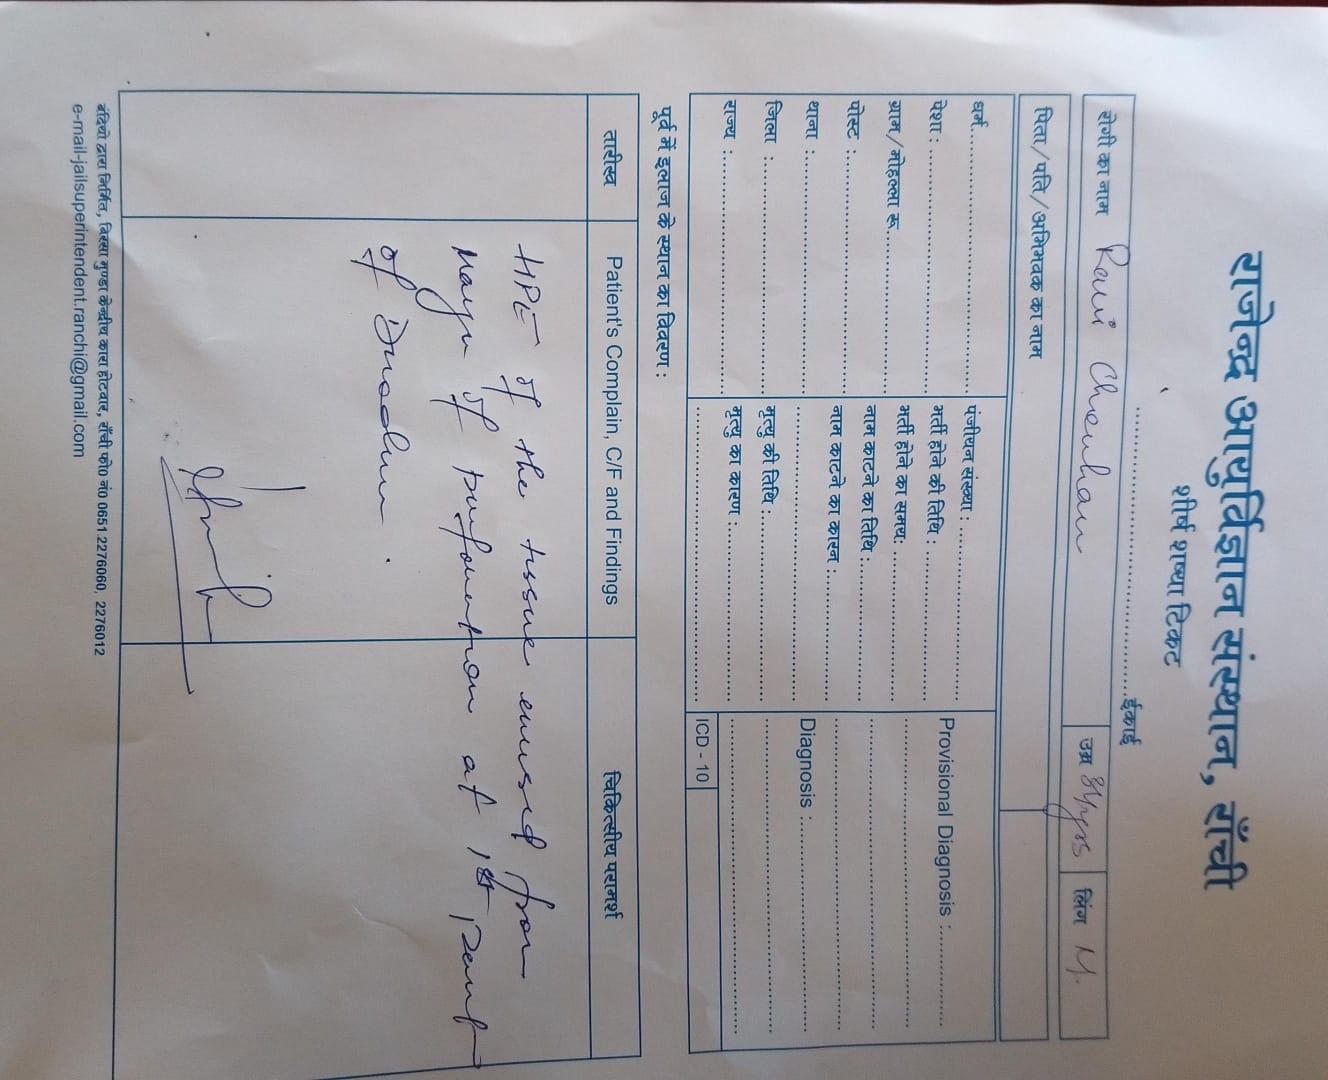 राजेन्द्र आयुर्विज्ञान संस्थान, राँची
शीर्ष शय्या टिकट
........................................ईकाई
रोगी का नाम Ravi Chauhan उम्र 34yrs लिंग M.
पिता/पति/अभिभवक का नाम
धर्म........................................ पंजीयन संख्या : ........................ Provisional Diagnosis :............
पेशा : ........................................ भर्ती होने की तिथि : ........................
ग्राम/मोहल्ला रू........................ भर्ती होने का समय:........................
पोस्ट :........................................ नाम काटने का तिथि :........................
थाना :........................................ नाम काटने का कारन :........................ Diagnosis :........................................
जिला :........................................ मृत्यु की तिथि :........................
राज्य :........................................ मृत्यु का कारण :........................
ICD - 10
पूर्व में इलाज के स्थान का विवरण :
तारीख Patient's Complain, C/F and Findings चिकित्सीय परामर्श
HPE of the tissue excised from
Margin of perforation at 1st part
of Duodenum.
बंदियो द्वारा निर्मित, बिरसा मुण्डा केन्द्रीय कारा होटवार, राँची फो० नं० 0651.2276060, 2276012
e-mail-jailsuperintendent.ranchi@gmail.com